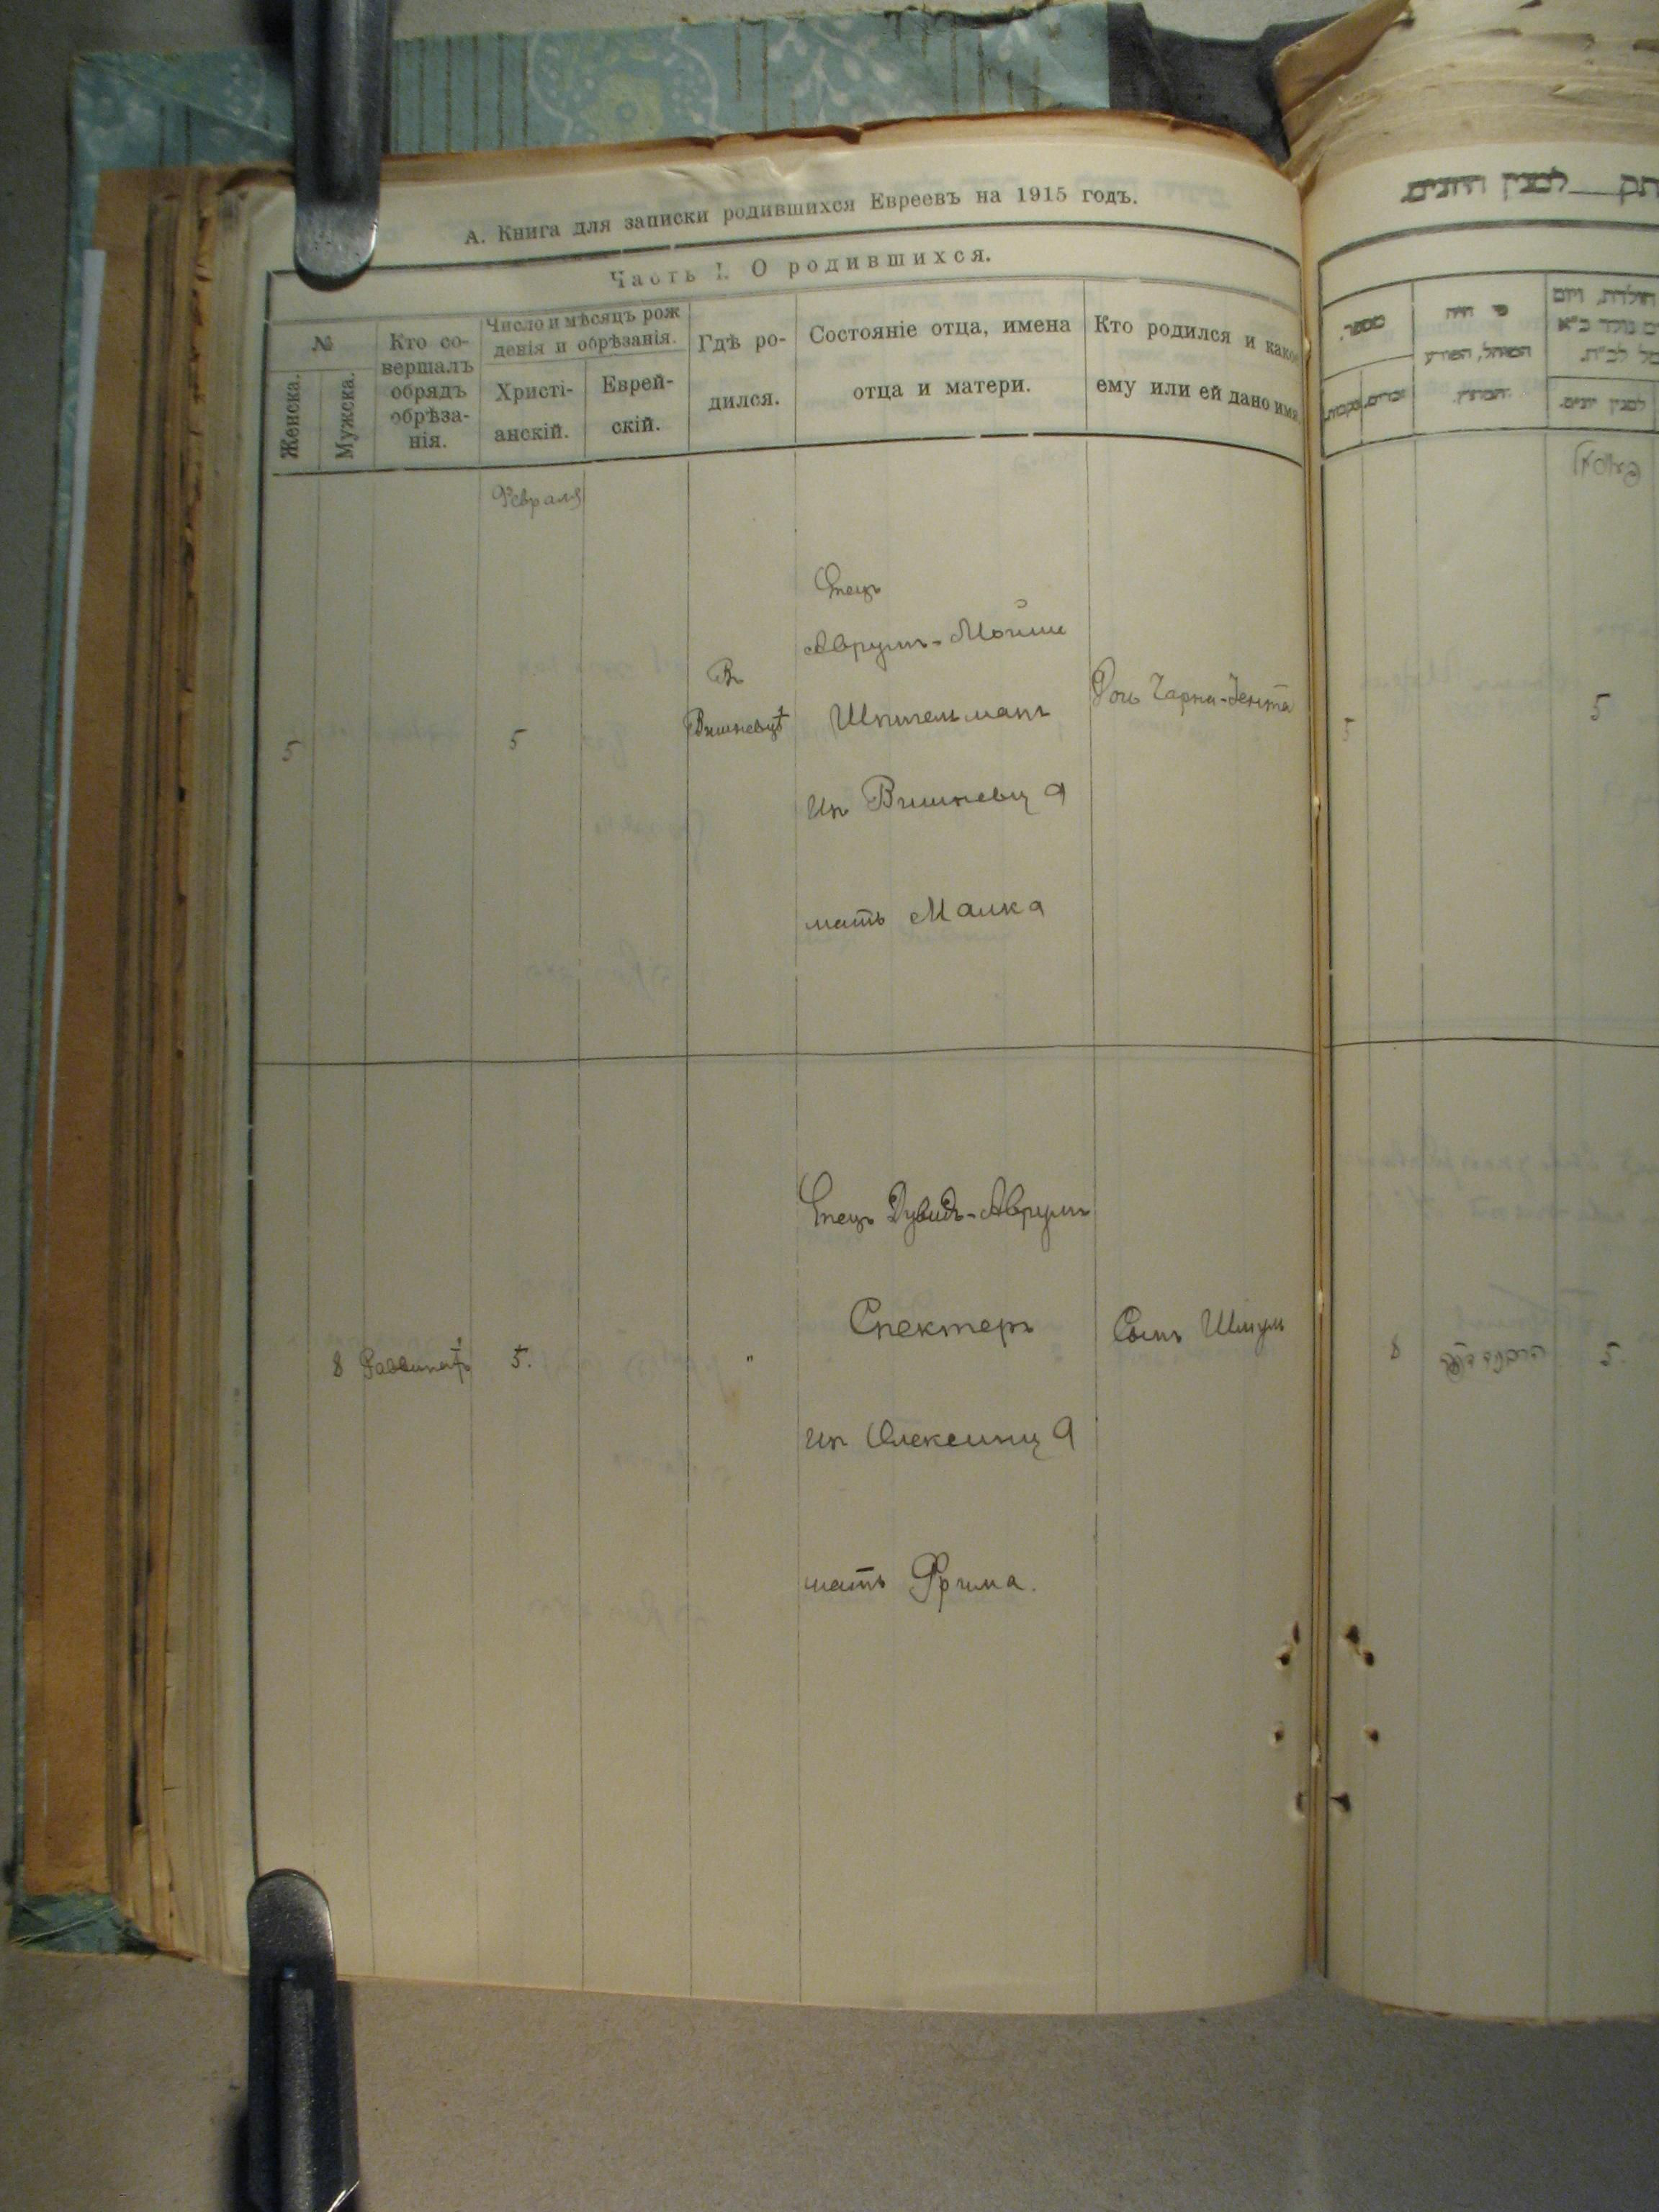 А. Книга для записки родившихся Евреевъ на 1915 годъ.
Часть I. О родившихся.
№
Женска.
Мужска.
Кто со-
вершалъ
обрядъ
обрѣза-
нія.
Число и мѣсяцъ рож
денія и обрѣзанія.
Христі-
анскій.
Еврей-
скій.
Гдѣ ро-
дился.
Состояніе отца, имена
отца и матери.
Кто родился и како
ему или ей дано имя
Февраля
5
5
Въ
Вишневцѣ
Отецъ
Аврумъ-Мойше
Шпигельманъ
изъ Вишневца
мать Малка
Дочь Чарна-Јента
8
Раввинатъ
5.
"
Отецъ Дувидъ-Аврумъ
Спектеръ
изъ Олексинца
мать Фрима.
Сынъ Шмуль
למנין היונים
מספר.
זכרים.
נקבות.
מי היה
המוהל, הפורע
והמוצץ.
למנין יונים.
5
5
8
5.